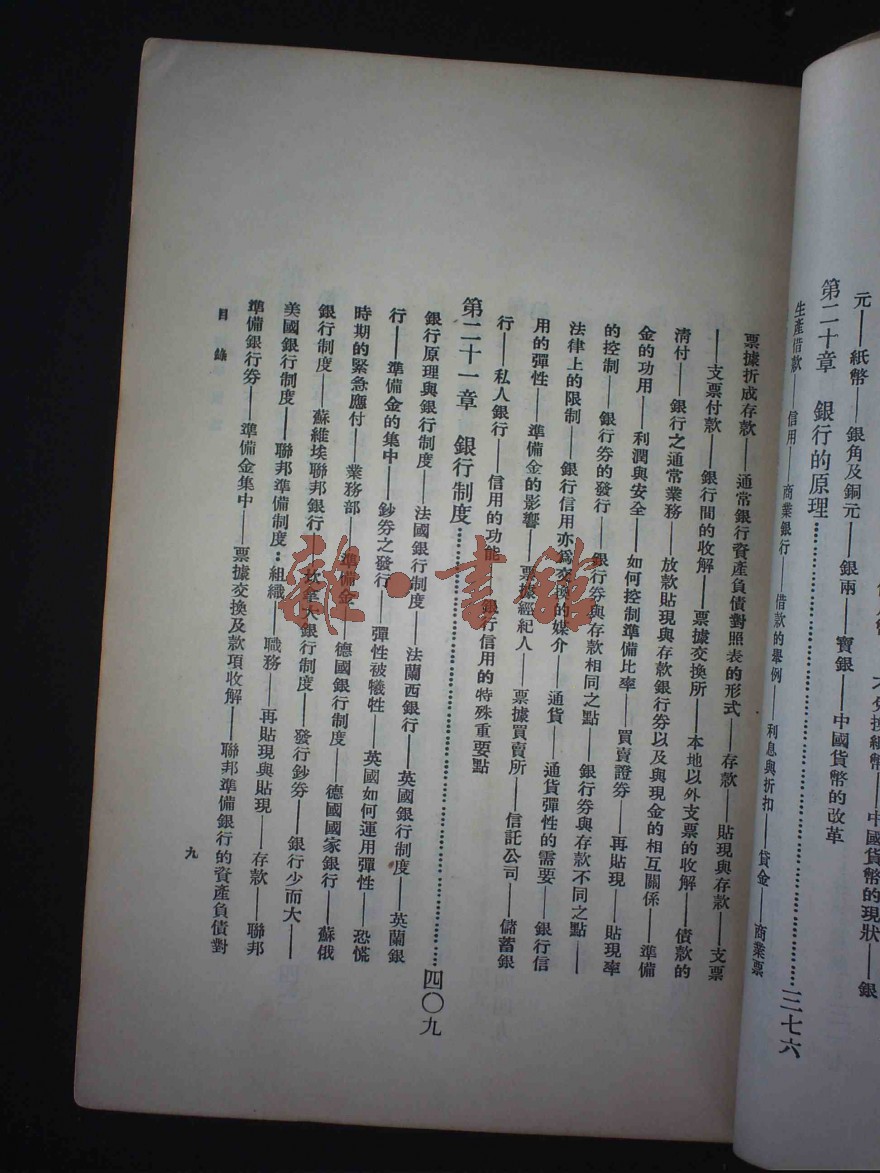 元——紙幣——銀角及銅元——銀兩——寶銀——中國貨幣的改革
第二十章 銀行的原理……三七六
生產借款——信用——商業銀行——借款的舉例——利息與折扣——貸金——商業票
票據折成存款——通常銀行資產負債對照表的形式——存款——貼現與存款——支票
——支票付款——銀行間的收解——票據交換所——本地以外支票的收解——債款的
清付——銀行之通常業務——放款貼現與存款銀行券以及與現金的相互關係——準備
金的功用——利潤與安全——如何控制準備比率——買賣證券——再貼現——貼現率
的控制——銀行券的發行——銀行券與存款相同之點——銀行券與存款不同之點——
法律上的限制——銀行信用亦爲交換的媒介——通貨——通貨彈性的需要——銀行信
用的彈性——準備金的影響——票據經紀人——票據買賣所——信託公司——儲蓄銀
行——私人銀行——信用的功能——銀行信用的特殊重要點
第二十一章 銀行制度……四〇九
銀行原理與銀行制度——法國銀行制度——法蘭西銀行——英國銀行制度——英蘭銀
行——準備金的集中——鈔券之發行——彈性被犧牲——英國如何運用彈性——恐慌
時期的緊急應付——業務部——準備金——德國銀行制度——德國國家銀行——蘇俄
銀行制度——蘇維埃聯邦銀行——坎拿大銀行制度——發行鈔券——銀行少而大——
美國銀行制度——聯邦準備制度：組織——職務——再貼現與貼現——存款——聯邦
準備銀行券——準備金集中——票據交換及款項收解——聯邦準備銀行的資產負債對
目錄
九
雜·書館